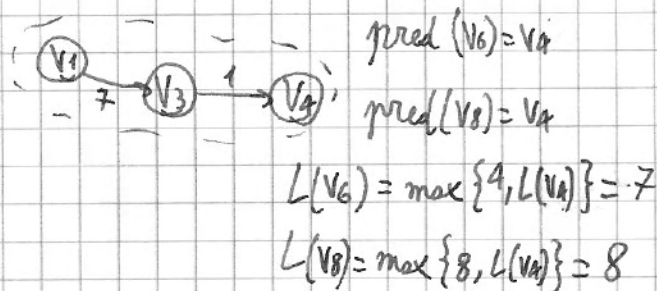 V1 7 V3 1 V4
pred (V6) = V4
pred(V8) = V4
L(V6) = max {4, L(V4)} = 7
L(V8) = max {8, L(V4)} = 8